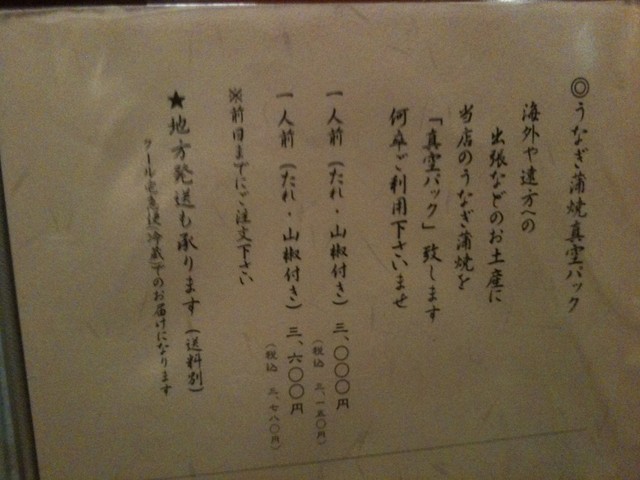 ◎うなぎ蒲焼真空パック
海外や遠方への
出張などのお土産に
当店のうなぎ蒲焼を
「真空パック」致します
何卒ご利用下さいませ
一人前（たれ・山椒付き）三、〇〇〇円
（税込 三、一五〇円）
一人前（たれ・山椒付き）三、六〇〇円
（税込 三、七八〇円）
※前日までにご注文下さい
★地方発送も承ります（送料別）
クール宅急便冷蔵でのお届けになります